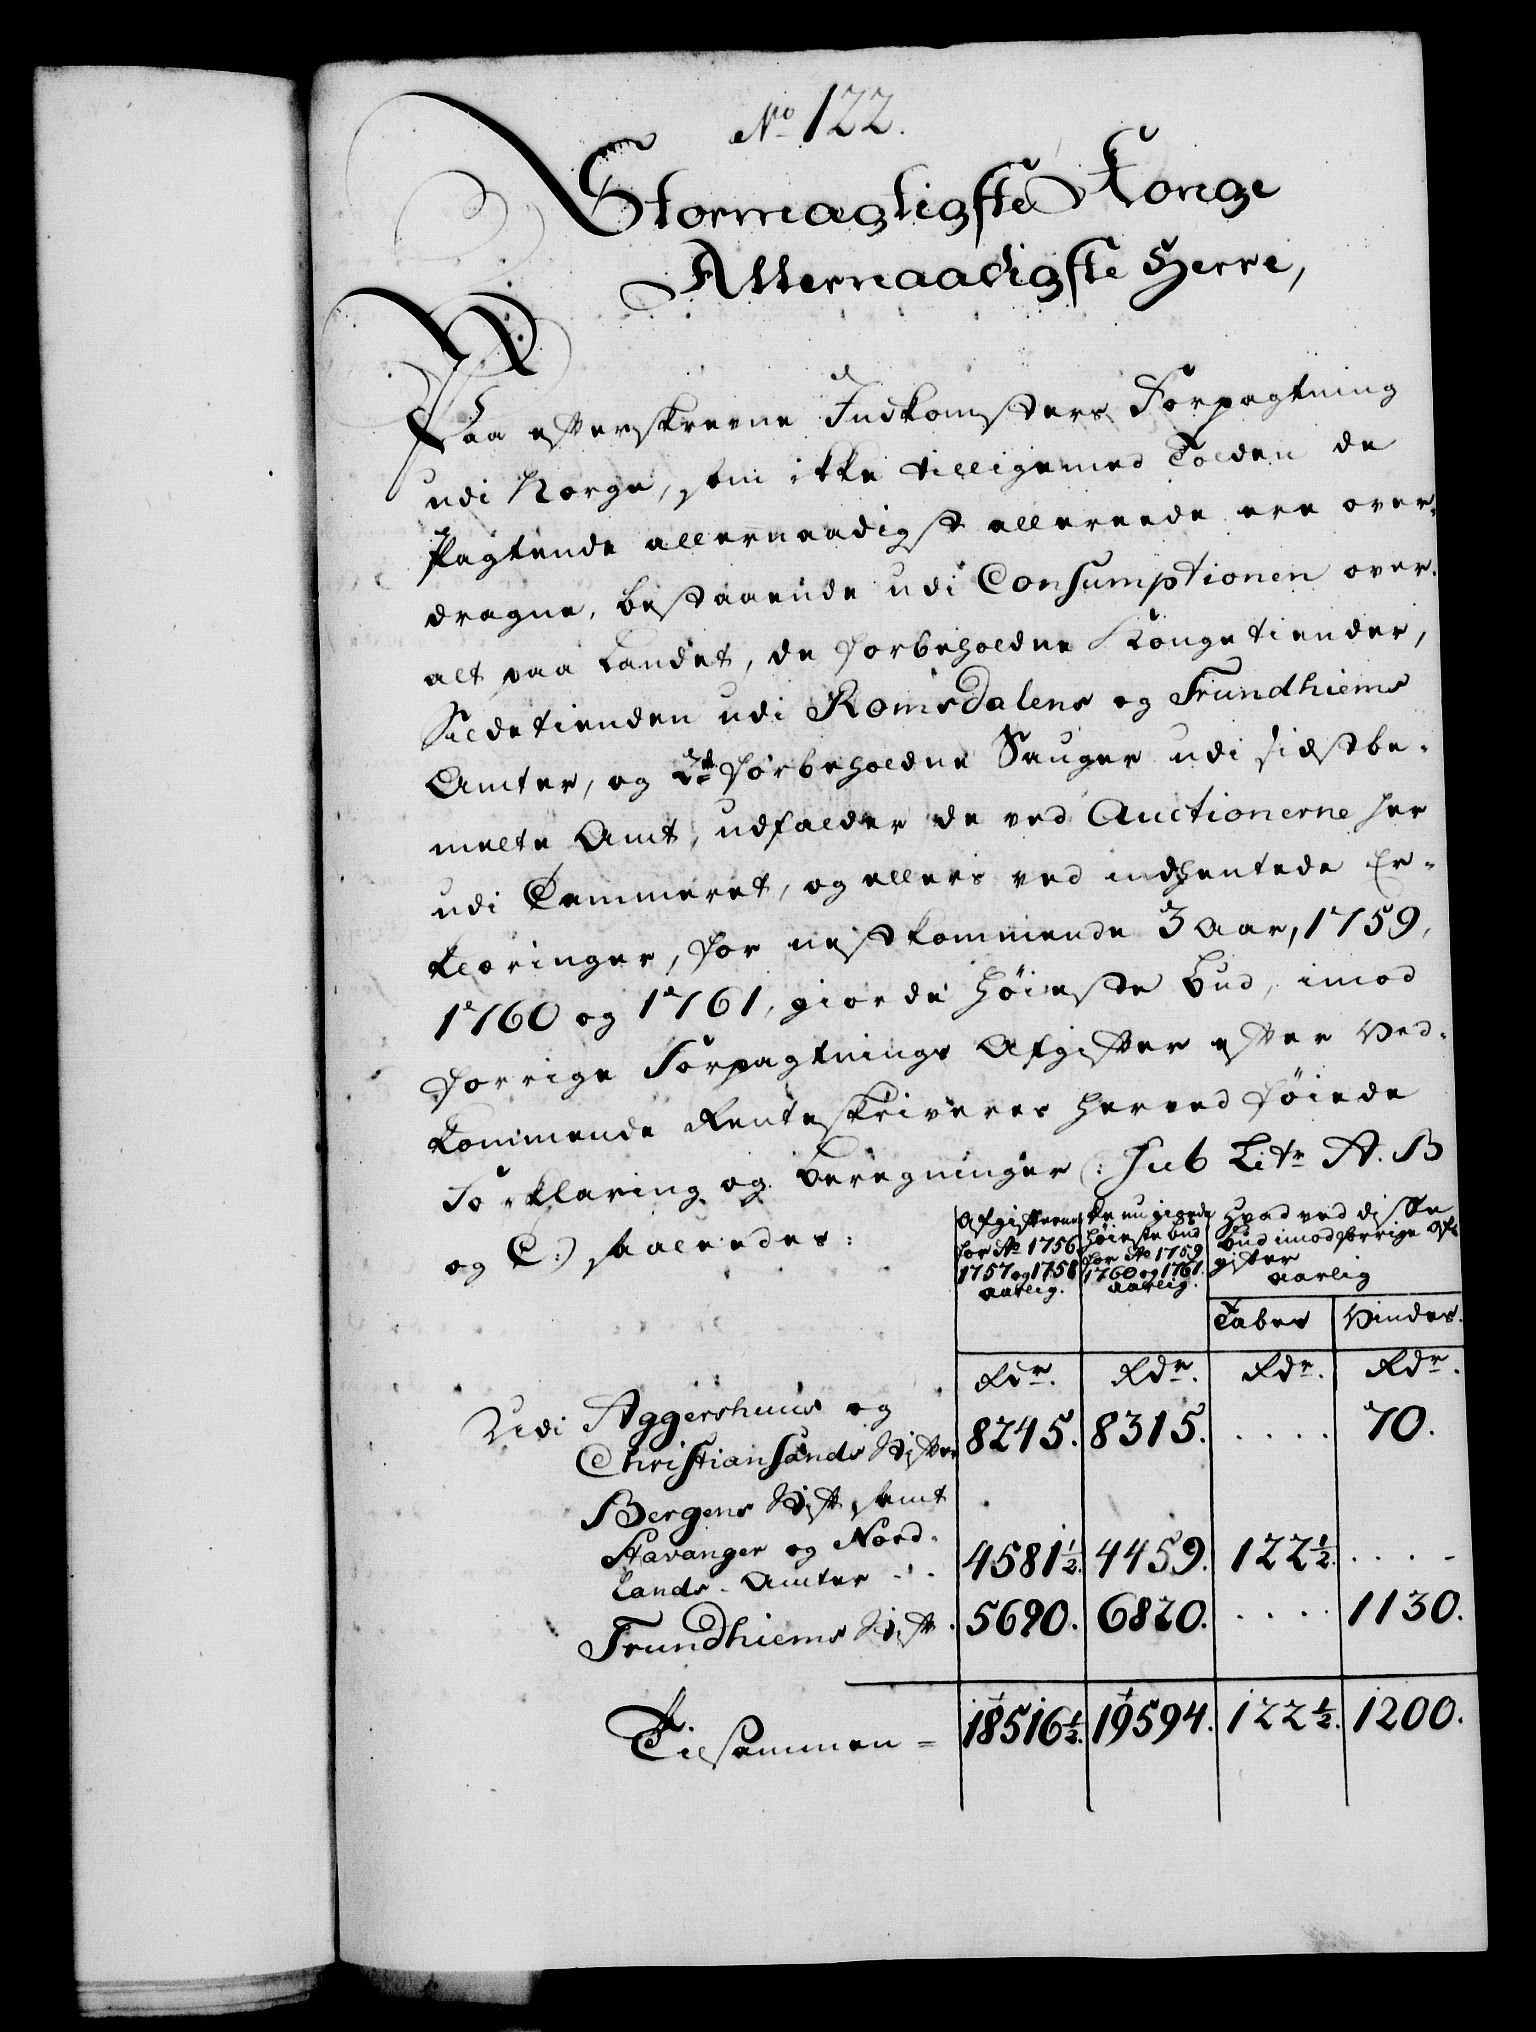 No 122.
Stormægtigste Konge
Allernaadigste Herre,
Paa efterskrevne Indkomsters Forpagtning
udi Norge, som ikke tilligemed Tolden de
Pagtende allernaadigst allereede ere over-
dragne, bestaaende udi Consumptionen over-
alt paa Landet, de forbeholdne Kongetiender,
Sildetienden udi Romsdalens og Trundhiems
Amter, og de forbeholdne Sauger udi sidstbe-
melte Amt, udfalder de ved Auctionerne her
udi Cammeret, og ellers ved indhentede Er-
klæringer, for nestkommende 3 Aar, 1759,
1760 og 1761, giorde høieste Bud, imod
forrige Forpagtnings Afgifter efter Ved-
kommende Renteskriveres herved føiede
Forklaring og Beregninger (: sub Litr A. B
og C:) saaledes:
Afgifterne for Ao 1756, 1757 og 1758 aarlig.
De nu giorde høieste Bud for Ao 1759 1760 og 1761. aarlig.
Hvad ved disse Bud imod forrige Afgifter aarlig
Tabes Vindes.
Rdr. Rdr. Rdr. Rdr.
Udi Aggershuus og
Christiansands Stifter 8245. 8315. .... 70.
Bergens Stift samt
Stavanger og Nord-
lands-Amter - - 4581½. 4459. 122½. ....
Trundhiems Stift. 5690. 6820. .... 1130.
Tilsammen = 18516½. 19594. 122½. 1200.